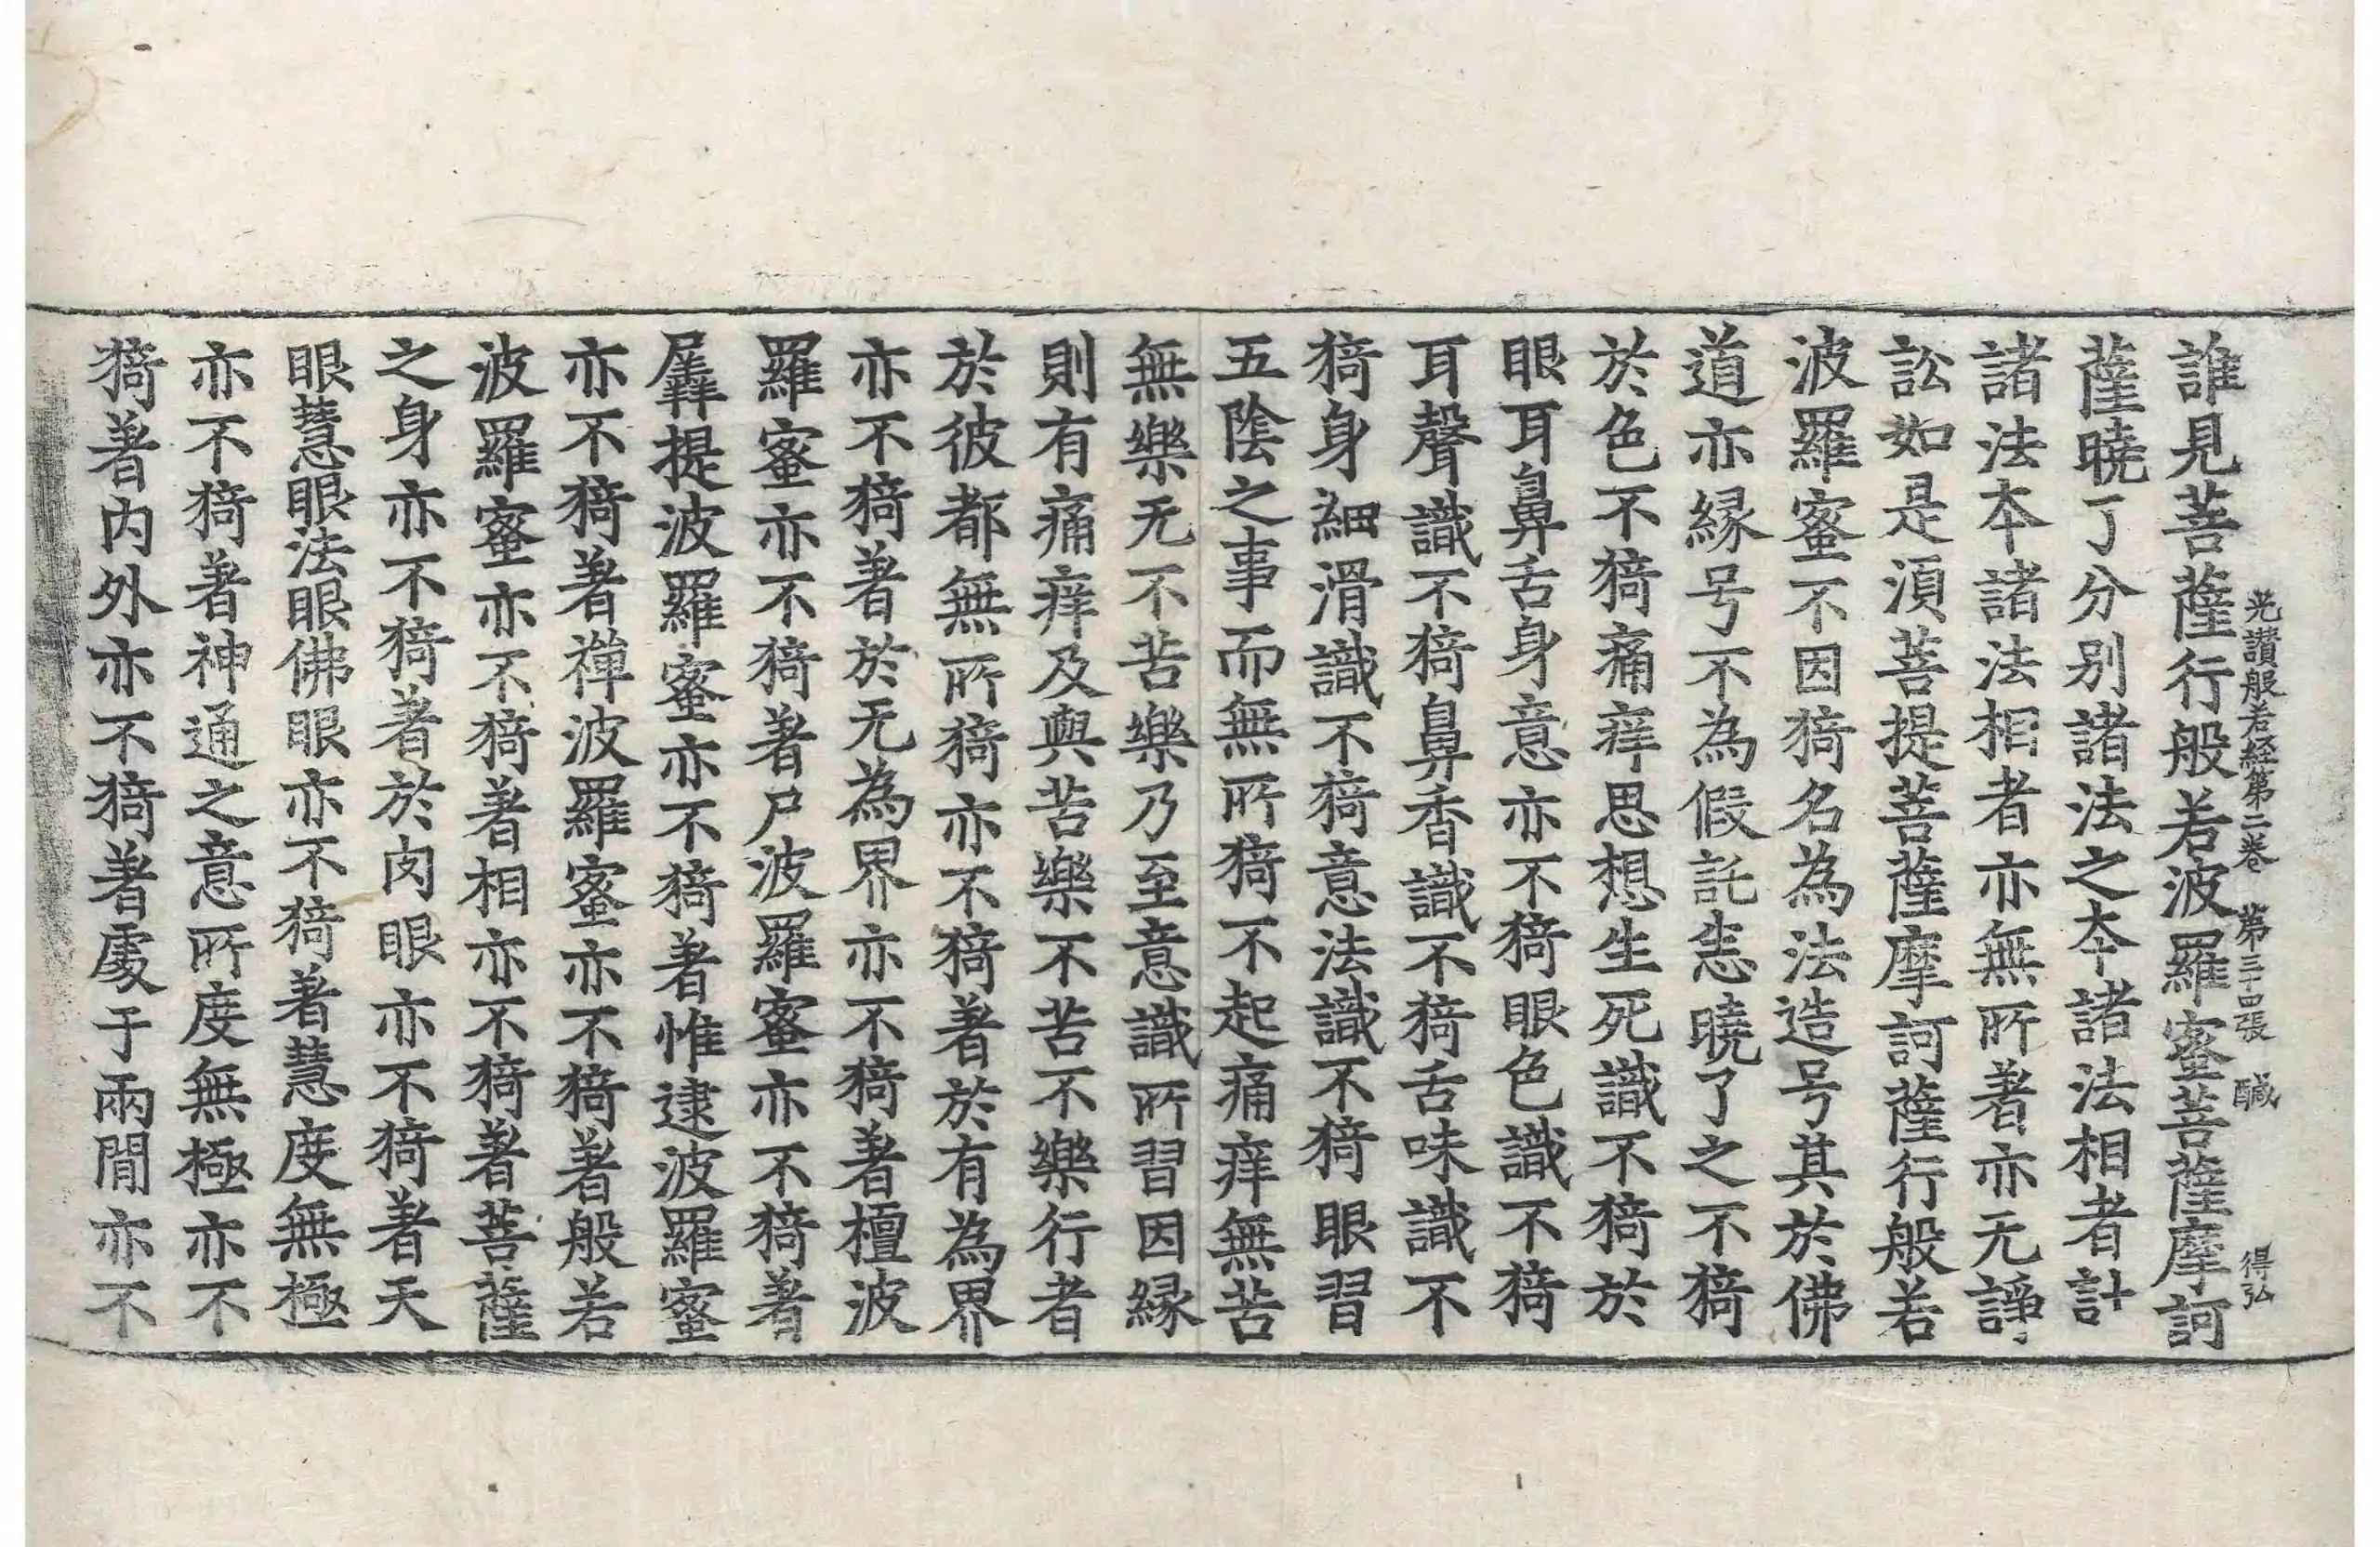 光讚般若經第二卷 第三十四張 醎 得弘
誰見菩薩行般若波羅蜜菩薩摩訶
薩曉了分別諸法之夲諸法相者計
諸法夲諸法相者亦無所著亦无諍
訟如是湏菩提菩薩摩訶薩行般若
波羅蜜不因猗名為法造号其於佛
道亦縁号不為假託恚曉了之不猗
於色不猗痛痒思想生死識不猗於
眼耳鼻舌身意亦不猗眼色識不猗
耳聲識不猗鼻香識不猗舌味識不
猗身細滑識不猗意法識不猗眼習
五陰之事而無所猗不起痛痒無苦
無樂无不苦樂乃至意識所習因縁
則有痛痒及與苦樂不苦不樂行者
於彼都無所猗亦不猗著於有為界
亦不猗著於无為界亦不猗著檀波
羅蜜亦不猗著尸波羅蜜亦不猗著
羼提波羅蜜亦不猗著惟逮波羅蜜
亦不猗著禪波羅蜜亦不猗著般若
波羅蜜亦不猗著相亦不猗著菩薩
之身亦不猗著於肉眼亦不猗著天
眼慧眼法眼佛眼亦不猗著慧度無極
亦不猗著神通之意所度無極亦不
猗著内外亦不猗著處于兩閒亦不